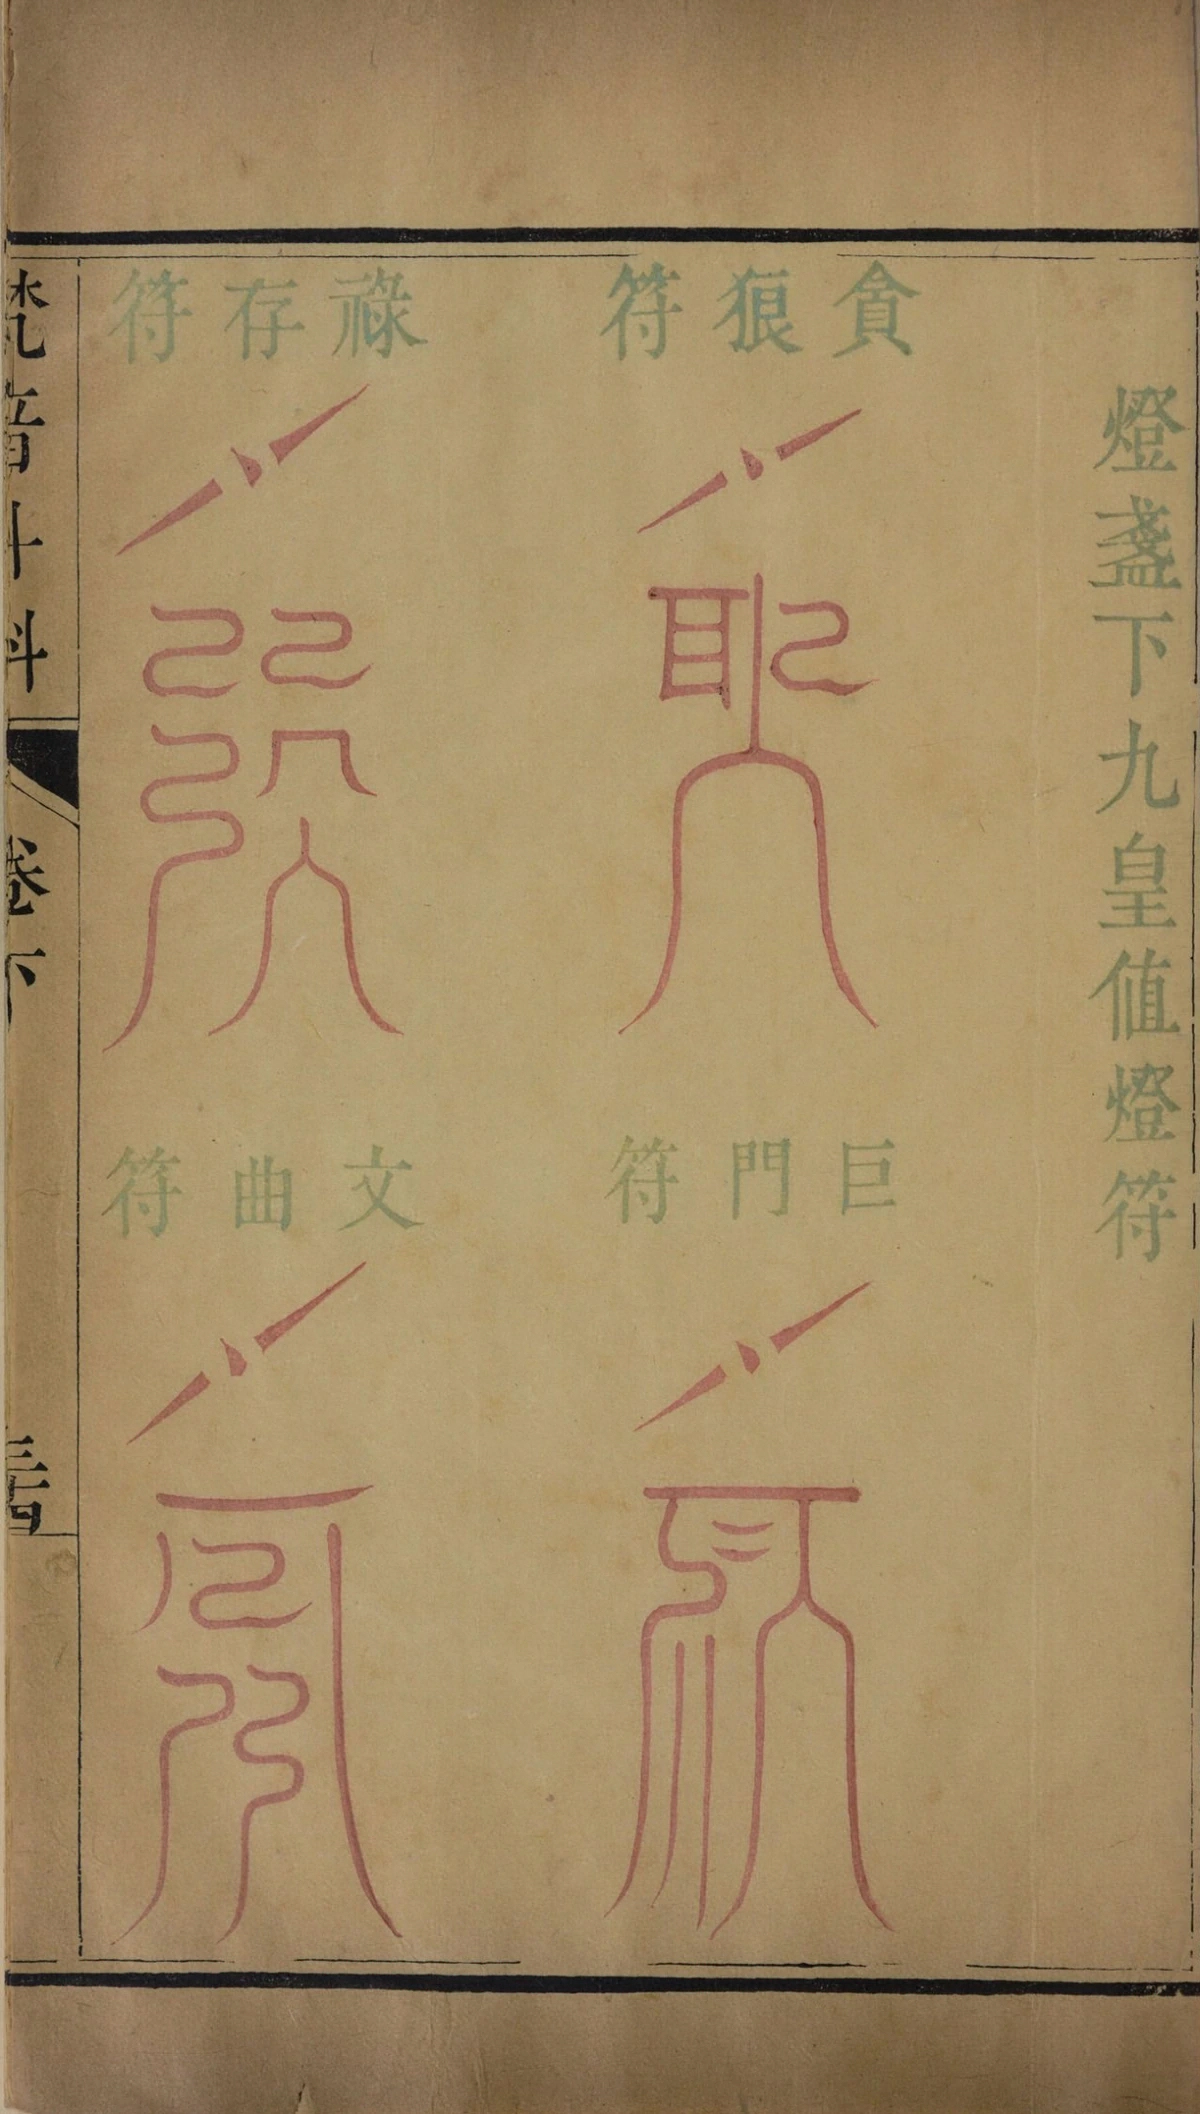 燈盞下九皇值燈符
貪狼符
巨門符
祿存符
文曲符
梵音斗科
卷下